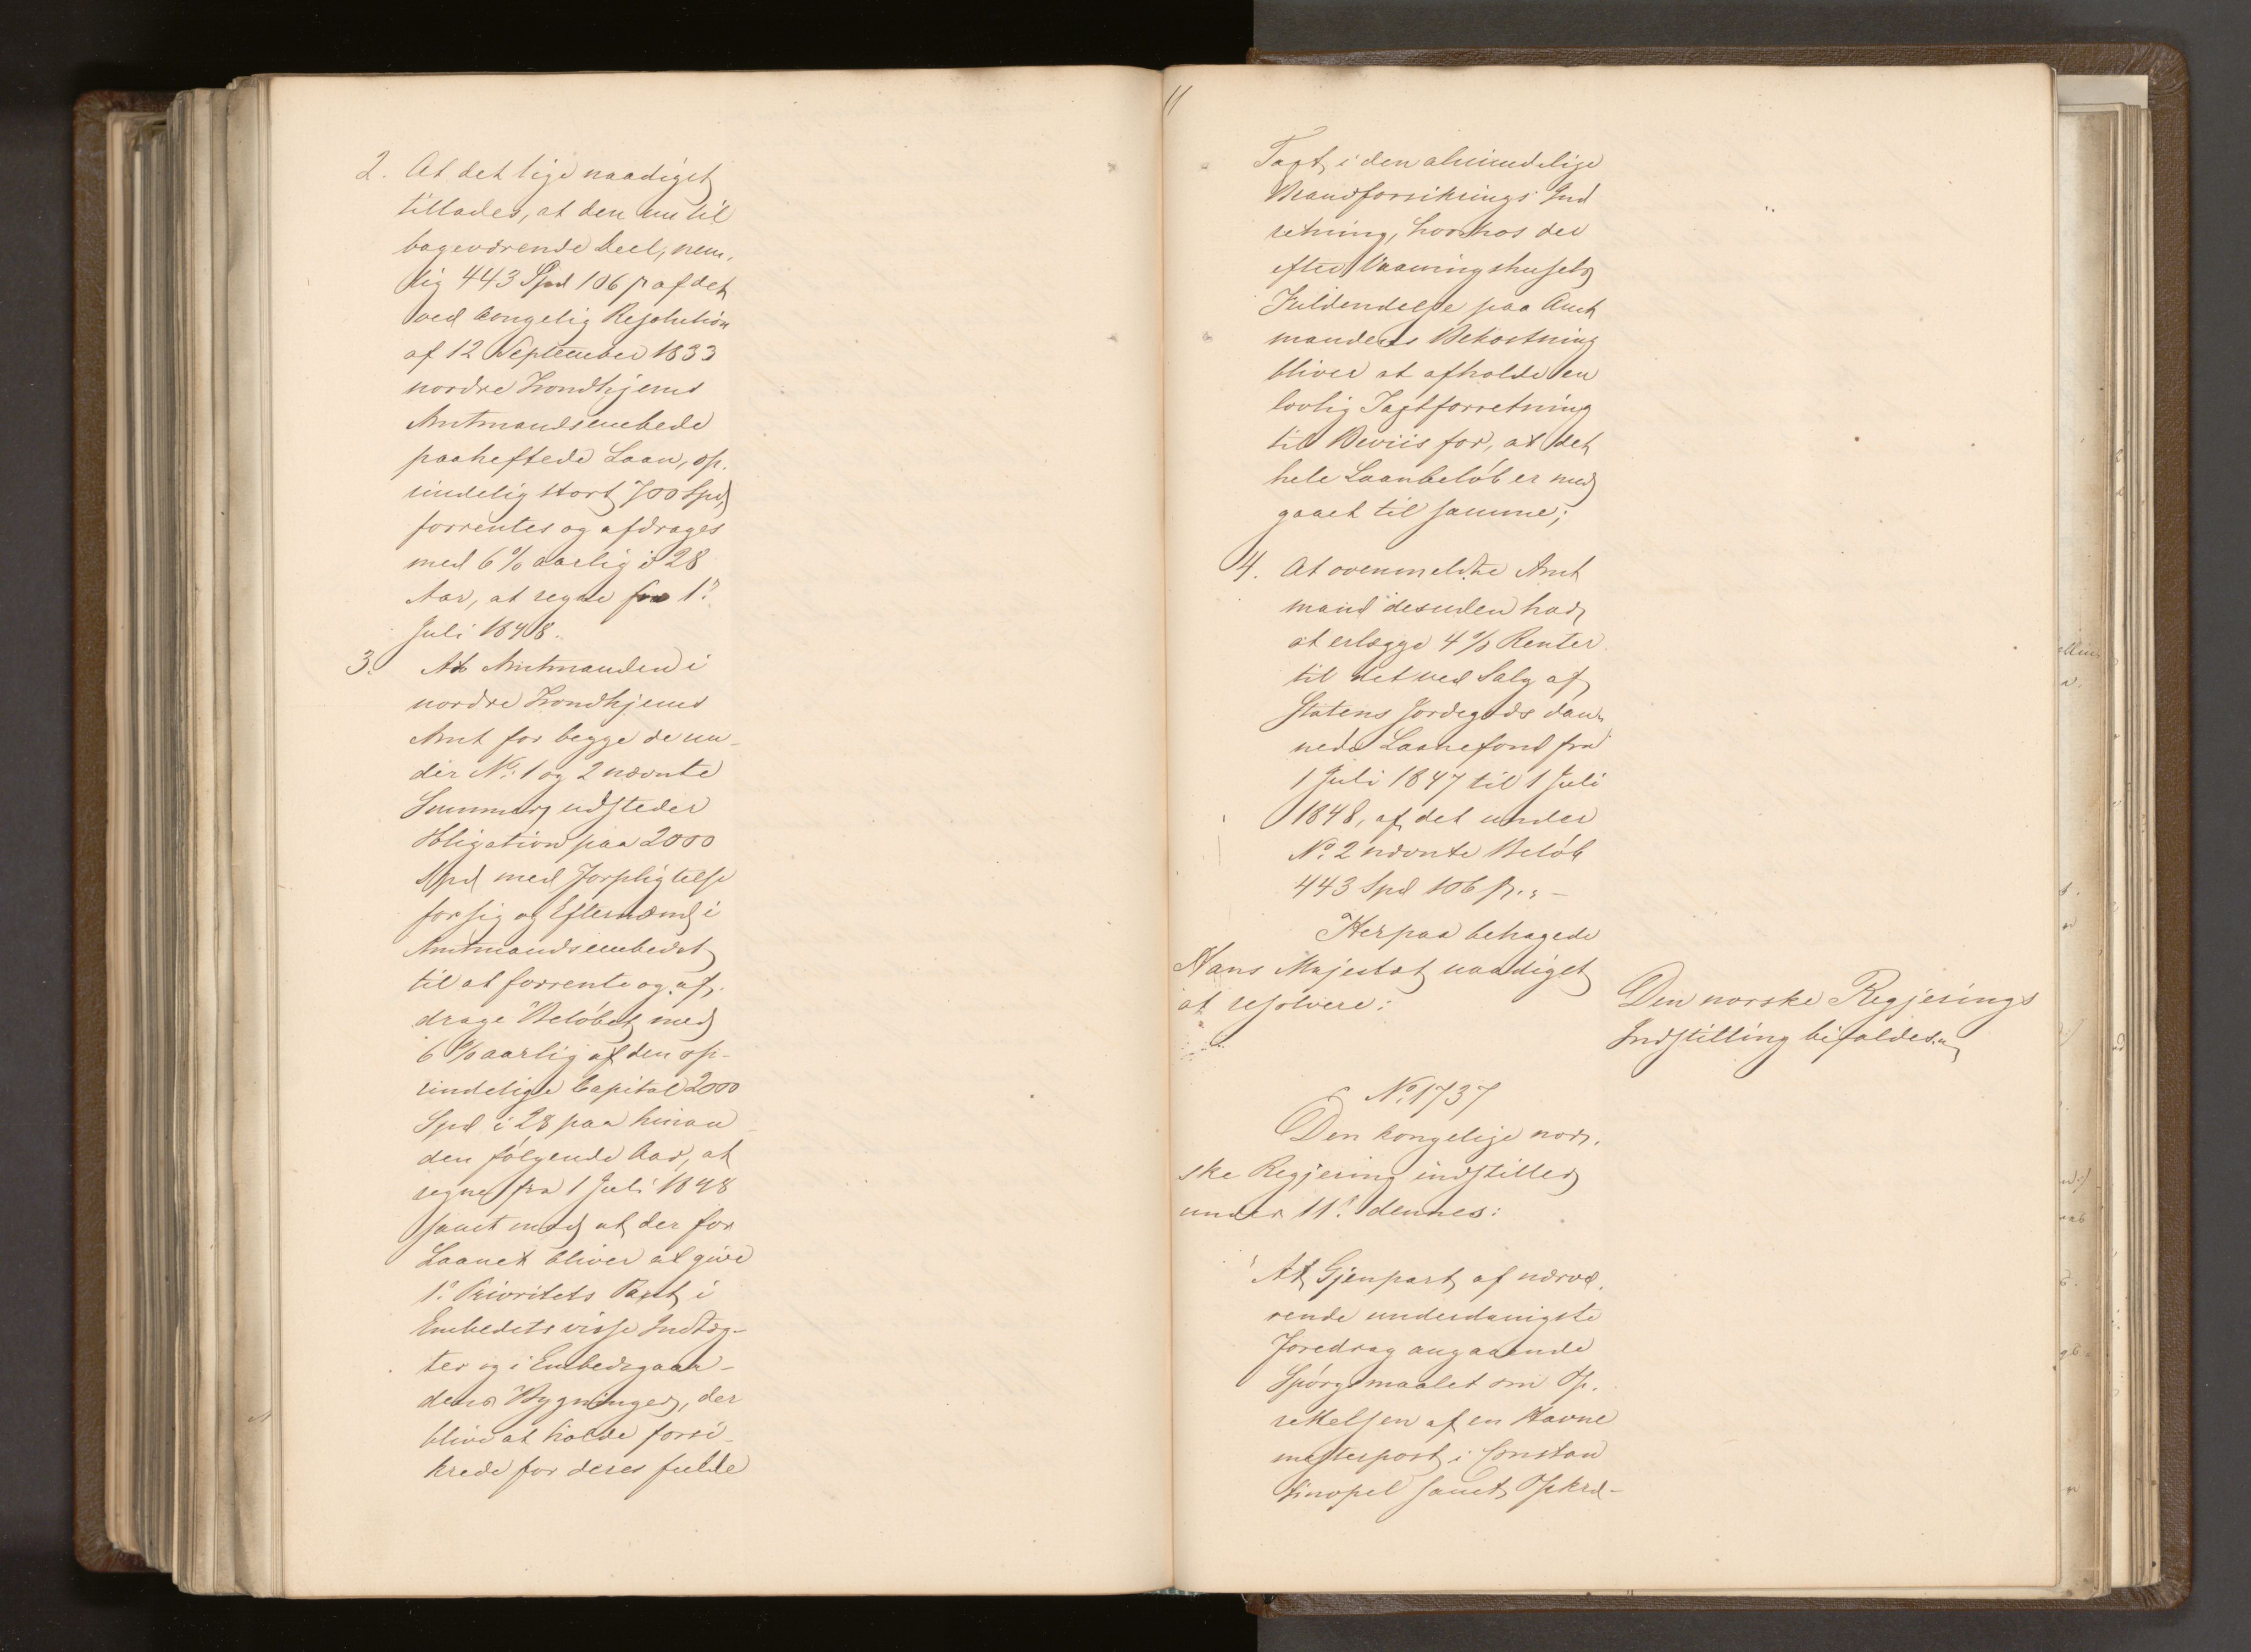 2. At det lige naadigst
tillades, at den nu til
bageværende Deel, nem-
lig 443 Spd 106 ß af det
ved kongelig Resolution
af 12 September 1833
nordre Trondhjems
Amtmandsembede
paaheftede Laan, op-
rindelig stort 700 Spd,
forrentes og afdrages
med 6 % aarlig i 28
Aar, at regne fra 1ste
Juli 1848.
3. At Amtmanden i
nordre Trondhjems
Amt for begge de un-
der No: 1 og 2 nævnte
Summer udsteder
Obligation paa 2000
Spd med Forpligtelse
for sig og Eftermænd i
Amtmandsembedet
til at forrente og af-
drage Beløbet med
6 % aarlig af den op-
rindelige Capital 2000
Spd i 28 paa hinan-
den følgende Aar, at
regne fra 1 Juli 1848
samt med at der for
Laanet bliver at give
1ste Prioritets Pant i
Embedets visse Indtæg-
ter og i Embedsgaar-
dens Bygninger, der
blive at holde forsi-
krede for deres fulde
11
Taxt i den almindelige
Brandforsikrings Ind
retning, hvorhos der
efter Vaaningshusets
Fuldendelse paa Amt
mandens Bekostning
bliver at afholde en
lovlig Taxtforretning
til Beviis for, at det
hele Laanbeløb er med
gaaet til samme;
4. At ovenmeldte Amt
mand desuden har
at erlægge 4 % Renter
til det ved Salg af
Statens Jordegods dan-
nede Laanefond fra
1 Juli 1847 til 1 Juli
1848, af det under
No. 2 nævnte Beløb
443 Spd 106 ß. „ –
Herpaa behagede
Hans Majestæt naadigst
at resolvere:
Den norske Regjerings
Indstilling bifaldes. „
No. 1737
Den kongelige nor-
ske Regjering indstiller
under 11te dennes:
At Gjenpart af nærvæ-
rende underdanigste
Foredrag angaaende
Spørgsmaalet om Op-
rettelsen af en Havne
mesterpost i Constan
tinopel samt Opkræ-